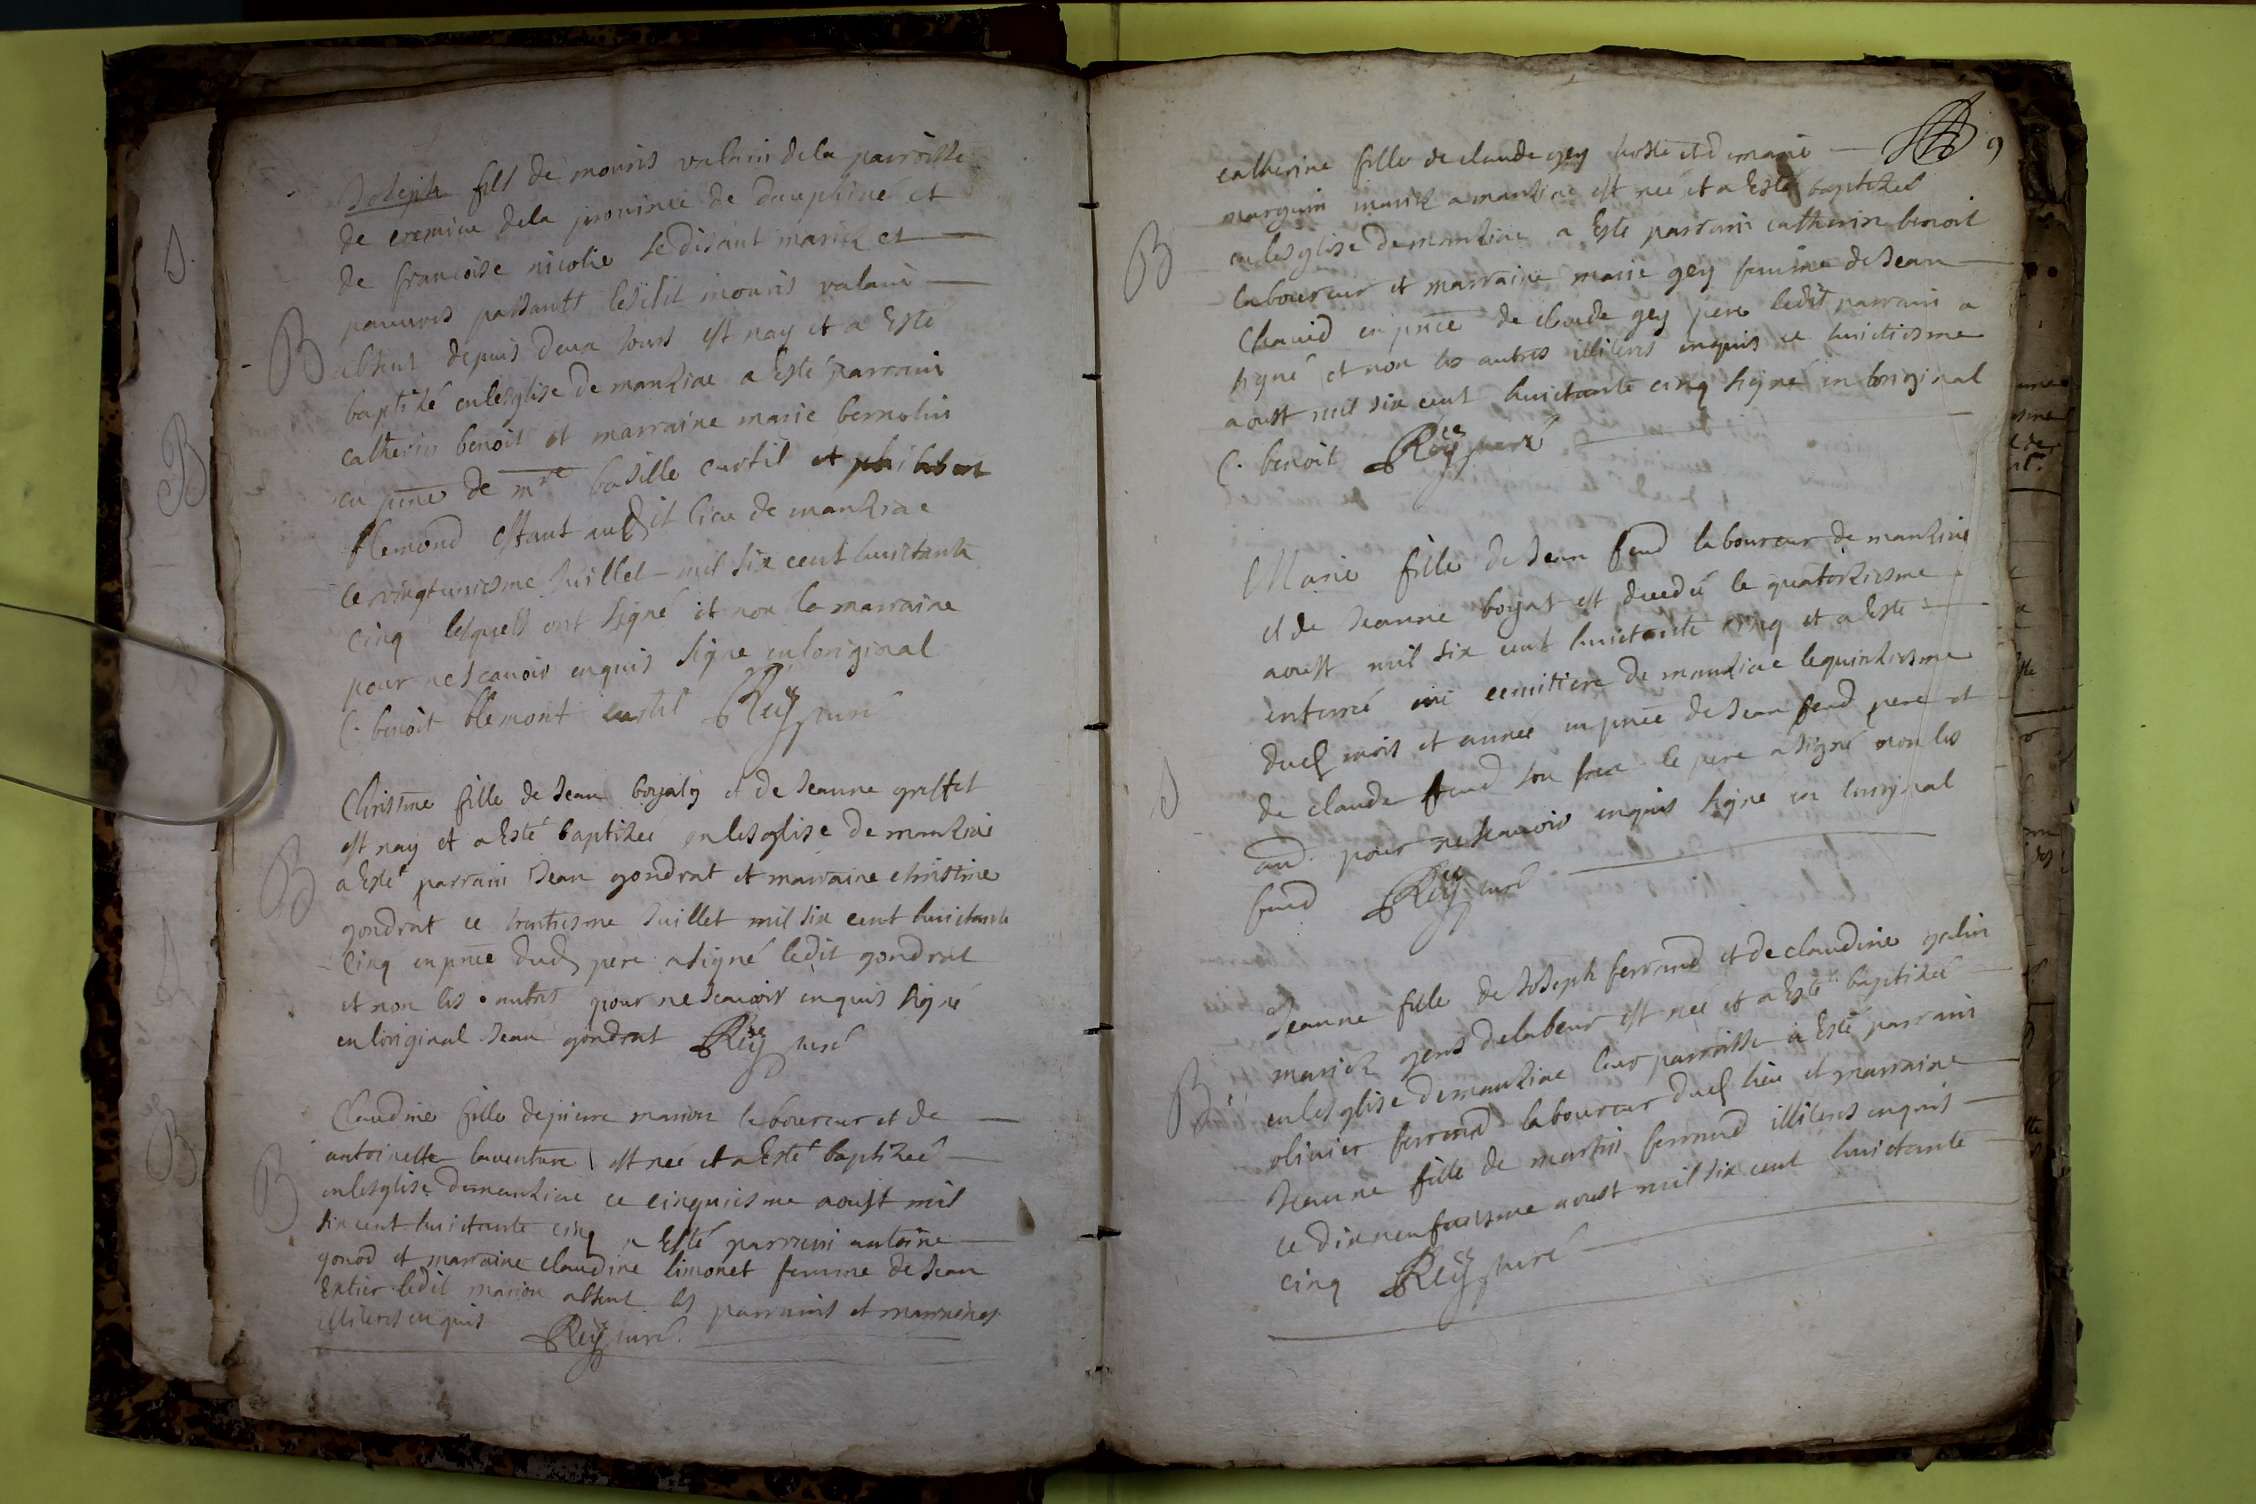 Joseph fils de mouris valain de la parroisse
de cremieu dela province de dauphiné et
de francoise nicolie se disant mariez et
pauures passantt lesdit mouris valain
B absent depuis deux jours est nay et a Esté
baptizé enlesglise de manziac a Esté parrain
catherin benoit et marraine marie bernolin
en pnce de mre basille curtil et philibert
blemond estant audit lieu de manziac
ce vingtuniesme Juillet mil six cent huictante
cinq lesquels ont signé et non la marraine
pour ne scauoir enquis signe enloriginal
C. benoit blemont curtil Rey curé
Christine fille de Jean boyaty et de Jeanne griffet
est nay et a Esté baptizée enlesglise de manziac
B a Esté parrain Jean gondrat et marraine christine
gondrat ce trentiesme Juillet mil six cent huictante
cinq en pnce dud pere a signé ledit gondrat
et non les autres pour ne scauoir enquis signé
enloriginal Jean gondrat Rey curé
Claudine fille de pierre marion laboureur et de
antoinette lauenture est née et a Esté baptizée
B enlesglise demanziac ce cinquiesme aoust mil
six cent huictante cinq a Esté parrain antoine
gonod et marraine claudine limonet femme de Jean
Entier ledit marion absent les parrains et marraines
illiteres enquis Rey curé
9
catherine fille de claude gey hoste et d emarie
marguin mariez a manziac est née et a Esté baptizée
B enlesglise demanziac a Esté parrain catherin benoit
laboureur et marraine marie gey femme de Jean
Chanid en pnce de claude gey pere ledit parrain a
signé et non les autres illiteres enquis ce huictiesme
aoust mil six cent huictante cinq signé en loriginal
C. benoit Rey curé
Marie fille de Jean feud laboureur de manziac
et de Jeanne boyat est decedée le quatorziesme
aoust mil six cent huictante cinq et a Esté
enterré au cemitiere de manziac lequinziesme
dud mois et année en pnce de Jean feud pere et
S de claude feud son frere le pere a signé non les
aud. pour ne scauoir enquis signé en loriginal
feud Rey curé
Jeanne fille de Joseph ferrand et de claudine gelin
mariez gens delabeur est née et a Esté baptizée
B enlesglise demanziac leur parroisse a Esté parrain
olivier ferrand laboureur dud lieu et marraine
Jeanne fille de martin ferrand illiteres enquis
ce dixneufuiesme aoust mil six cent huictante
cinq Rey curé